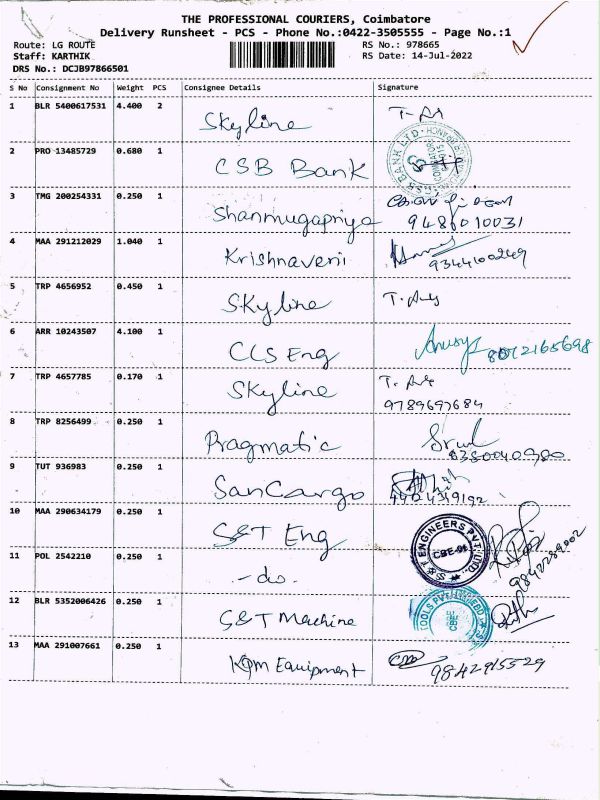 THE PROFESSIONAL COURIERS, Coimbatore
Delivery Runsheet - PCS - Phone No.:0422-3505555 - Page No.:1
Route: LG ROUTE
RS No.: 978665
Staff: KARTHIK
RS Date: 14-Jul-2022
DRS No.: DCJB97866501
S No Consignment No Weight PCS Consignee Details Signature
1 BLR 5400617531 4.400 2 Skyline
2 PRO 13485729 0.680 1 CSB Bank
3 TMG 200254331 0.250 1 Shanmugapriya
9486010031
4 MAA 291212029 1.040 1 Krishnaveni
9344100249
5 TRP 4656952 0.450 1 Skyline
6 ARR 10243507 4.100 1 CLS Eng
7 TRP 4657785 0.170 1 Skyline
9789697684
8 TRP 8256499 0.250 1 Pragmatic
8380040980
9 TUT 936983 0.250 1 SanCargo
10 MAA 290634179 0.250 1 S&T Eng
T ENGINEERS PVT
CBE
11 POL 2542210 0.250 1 -do.
12 BLR 5352006426 0.250 1 S&T Machine
TOOLS PVT
CBE
13 MAA 291007661 0.250 1 KQM Equipment
9842915529